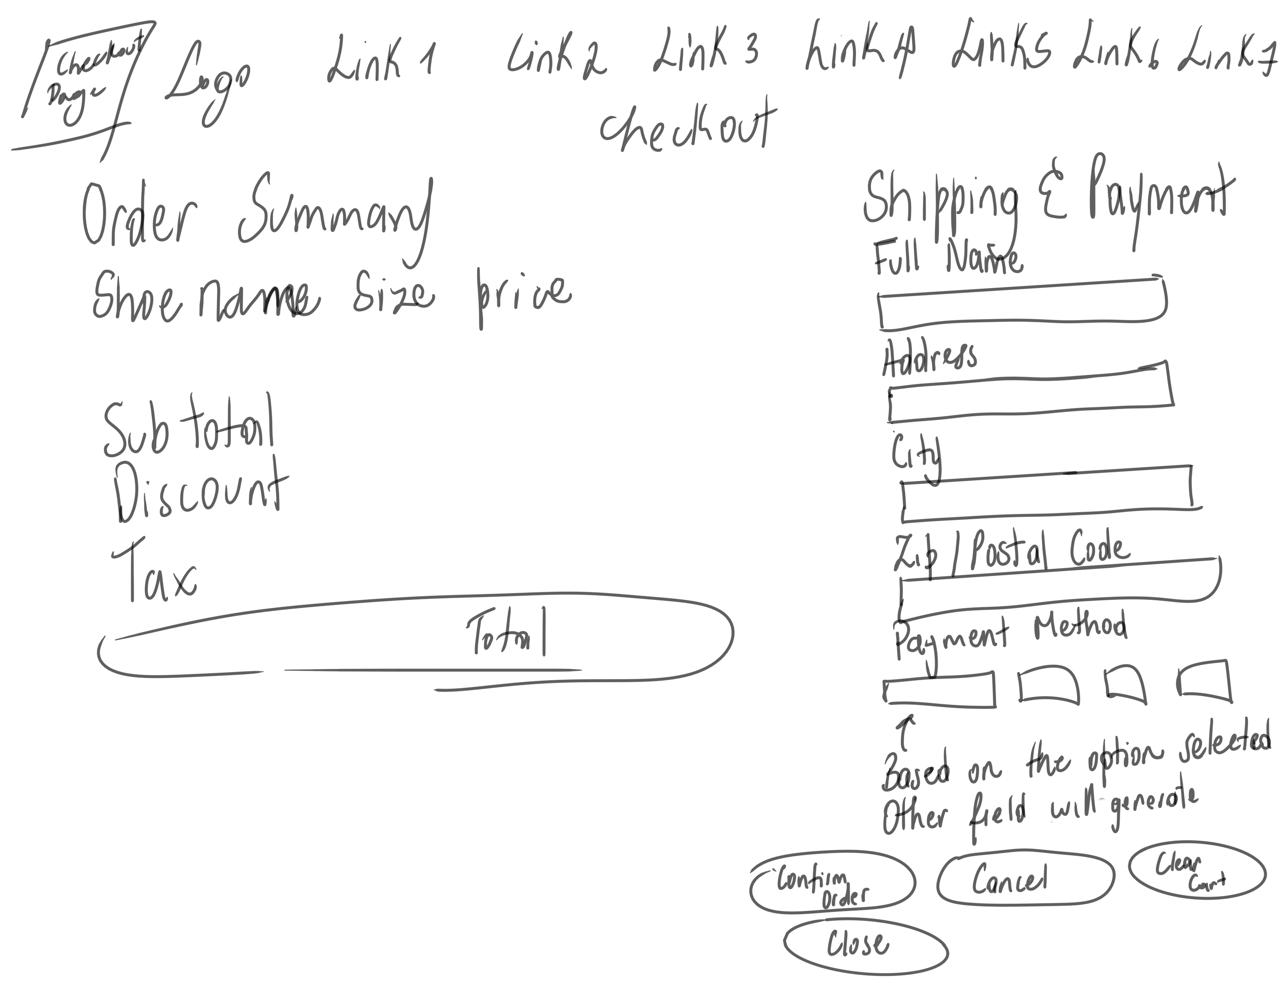 Checkout
Page
Logo
Link 1
Link 2
Link 3
Link 4
Link 5
Link 6
Link 7
Checkout
Order Summary
Shoe name size price
Sub total
Discount
Tax
Total
Shipping & Payment
Full Name
Address
City
Zip / Postal Code
Payment Method
Based on the option selected
Other field will generate
Confirm
Order
Cancel
Clear
Cart
Close